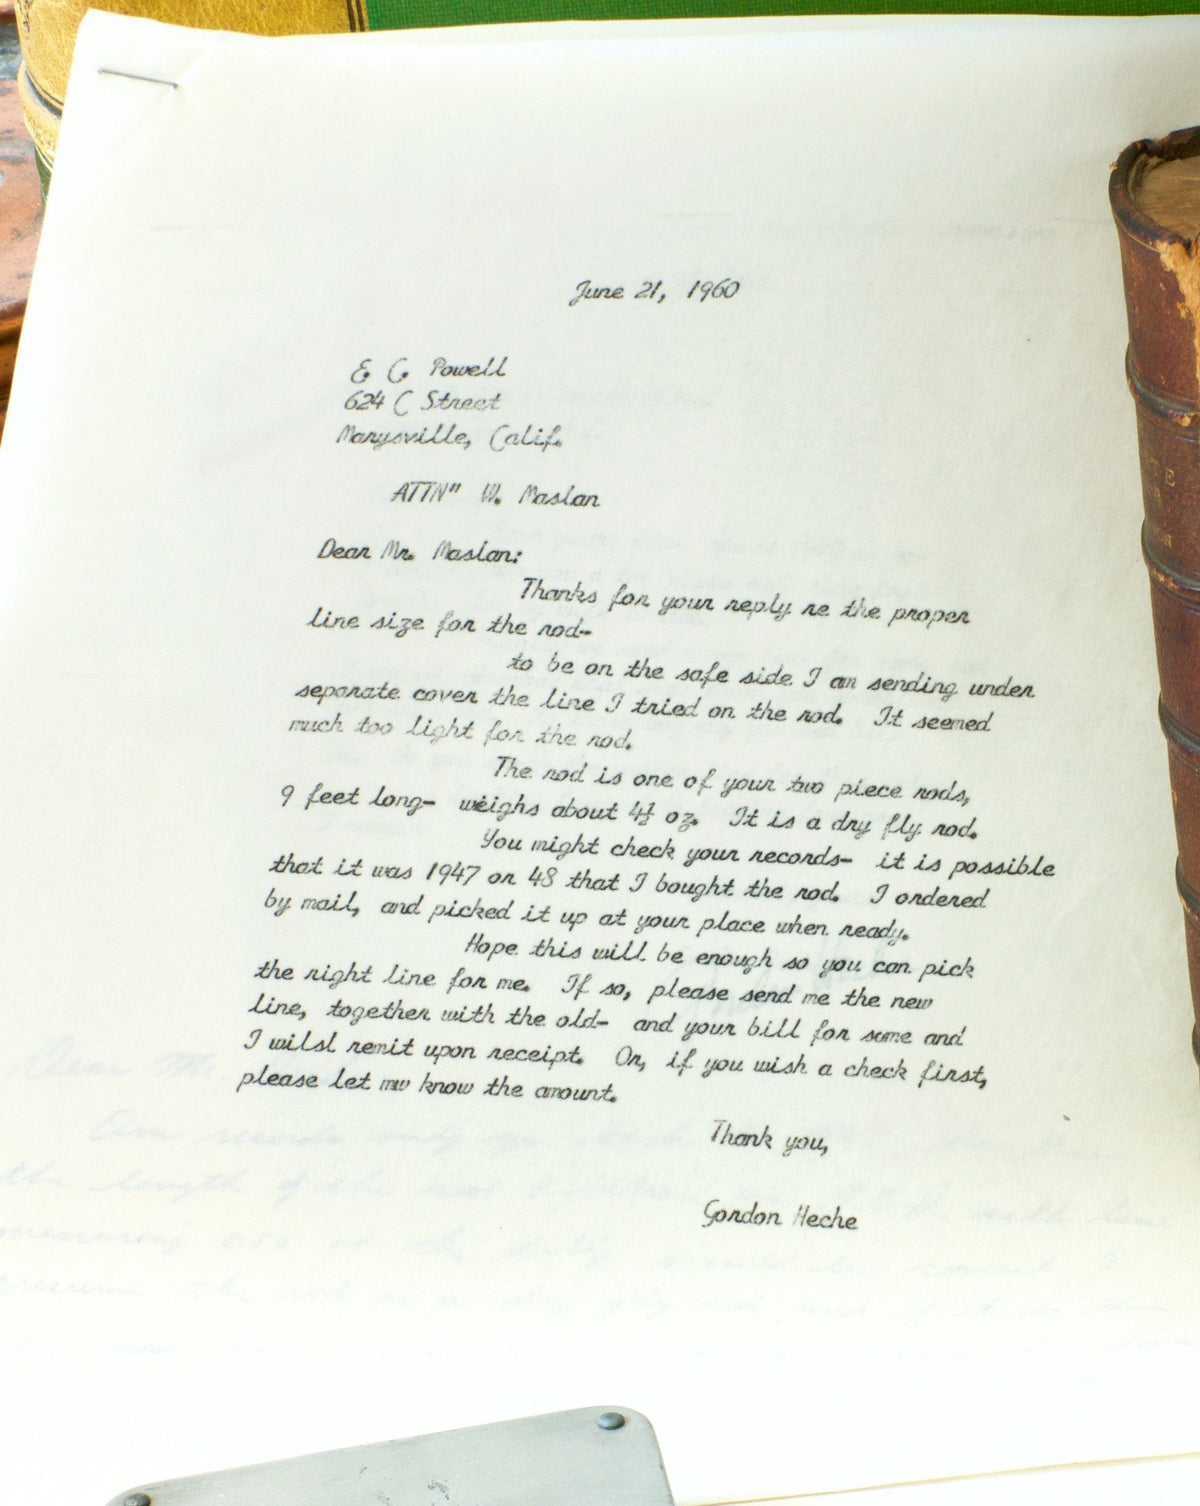 June 21, 1960
E. C. Powell
624 C Street
Marysville, Calif.
ATTN" W. Maslan
Dear Mr. Maslan:
Thanks for your reply re the proper
line size for the rod-
to be on the safe side I am sending under
separate cover the line I tried on the rod. It seemed
much too light for the rod.
The rod is one of your two piece rods,
9 feet long- weighs about 4½ oz. It is a dry fly rod.
You might check your records- it is possible
that it was 1947 or 48 that I bought the rod. I ordered
by mail, and picked it up at your place when ready.
Hope this will be enough so you can pick
the right line for me. If so, please send me the new
line, together with the old- and your bill for same and
I wilsl remit upon receipt. Or, if you wish a check first,
please let mw know the amount.
Thank you,
Gordon Heche
Dear
the length of the rod